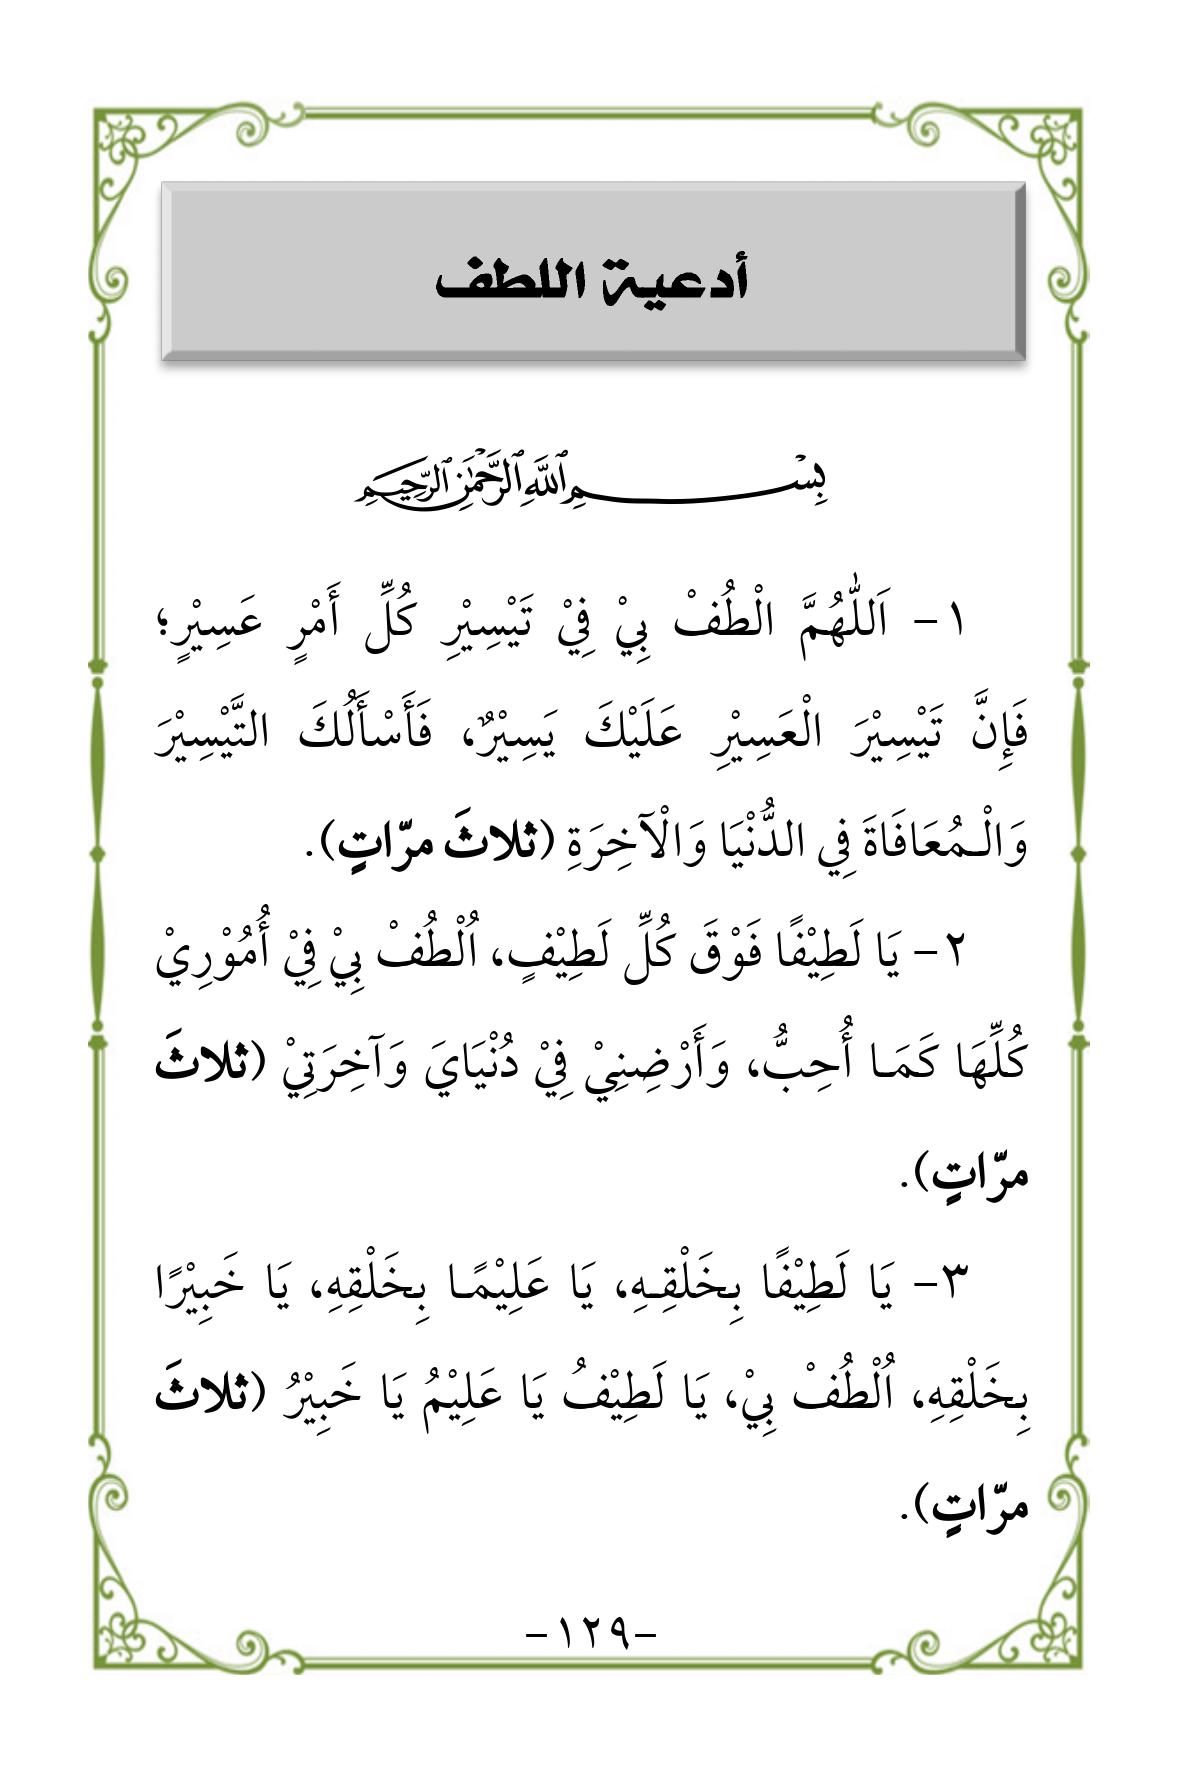 أدعية اللطف
بِسْمِ اللَّهِ الرَّحْمَٰنِ الرَّحِيمِ
١- اَللّٰهُمَّ الْطُفْ بِيْ فِيْ تَيْسِيْرِ كُلِّ أَمْرٍ عَسِيْرٍ؛
فَإِنَّ تَيْسِيْرَ الْعَسِيْرِ عَلَيْكَ يَسِيْرٌ، فَأَسْأَلُكَ التَّيْسِيْرَ
وَالْـمُعَافَاةَ فِي الدُّنْيَا وَالْآخِرَةِ (ثلاثَ مرّاتٍ).
٢- يَا لَطِيْفًا فَوْقَ كُلِّ لَطِيْفٍ، اُلْطُفْ بِيْ فِيْ أُمُوْرِيْ
كُلِّهَا كَمَـا أُحِبُّ، وَأَرْضِنِيْ فِيْ دُنْيَايَ وَآخِرَتِيْ (ثلاثَ
مرّاتٍ).
٣- يَا لَطِيْفًا بِخَلْقِـهِ، يَا عَلِيْمًـا بِخَلْقِهِ، يَا خَبِيْرًا
بِخَلْقِهِ، اُلْطُفْ بِيْ، يَا لَطِيْفُ يَا عَلِيْمُ يَا خَبِيْرُ (ثلاثَ
مرّاتٍ).
-١٢٩-